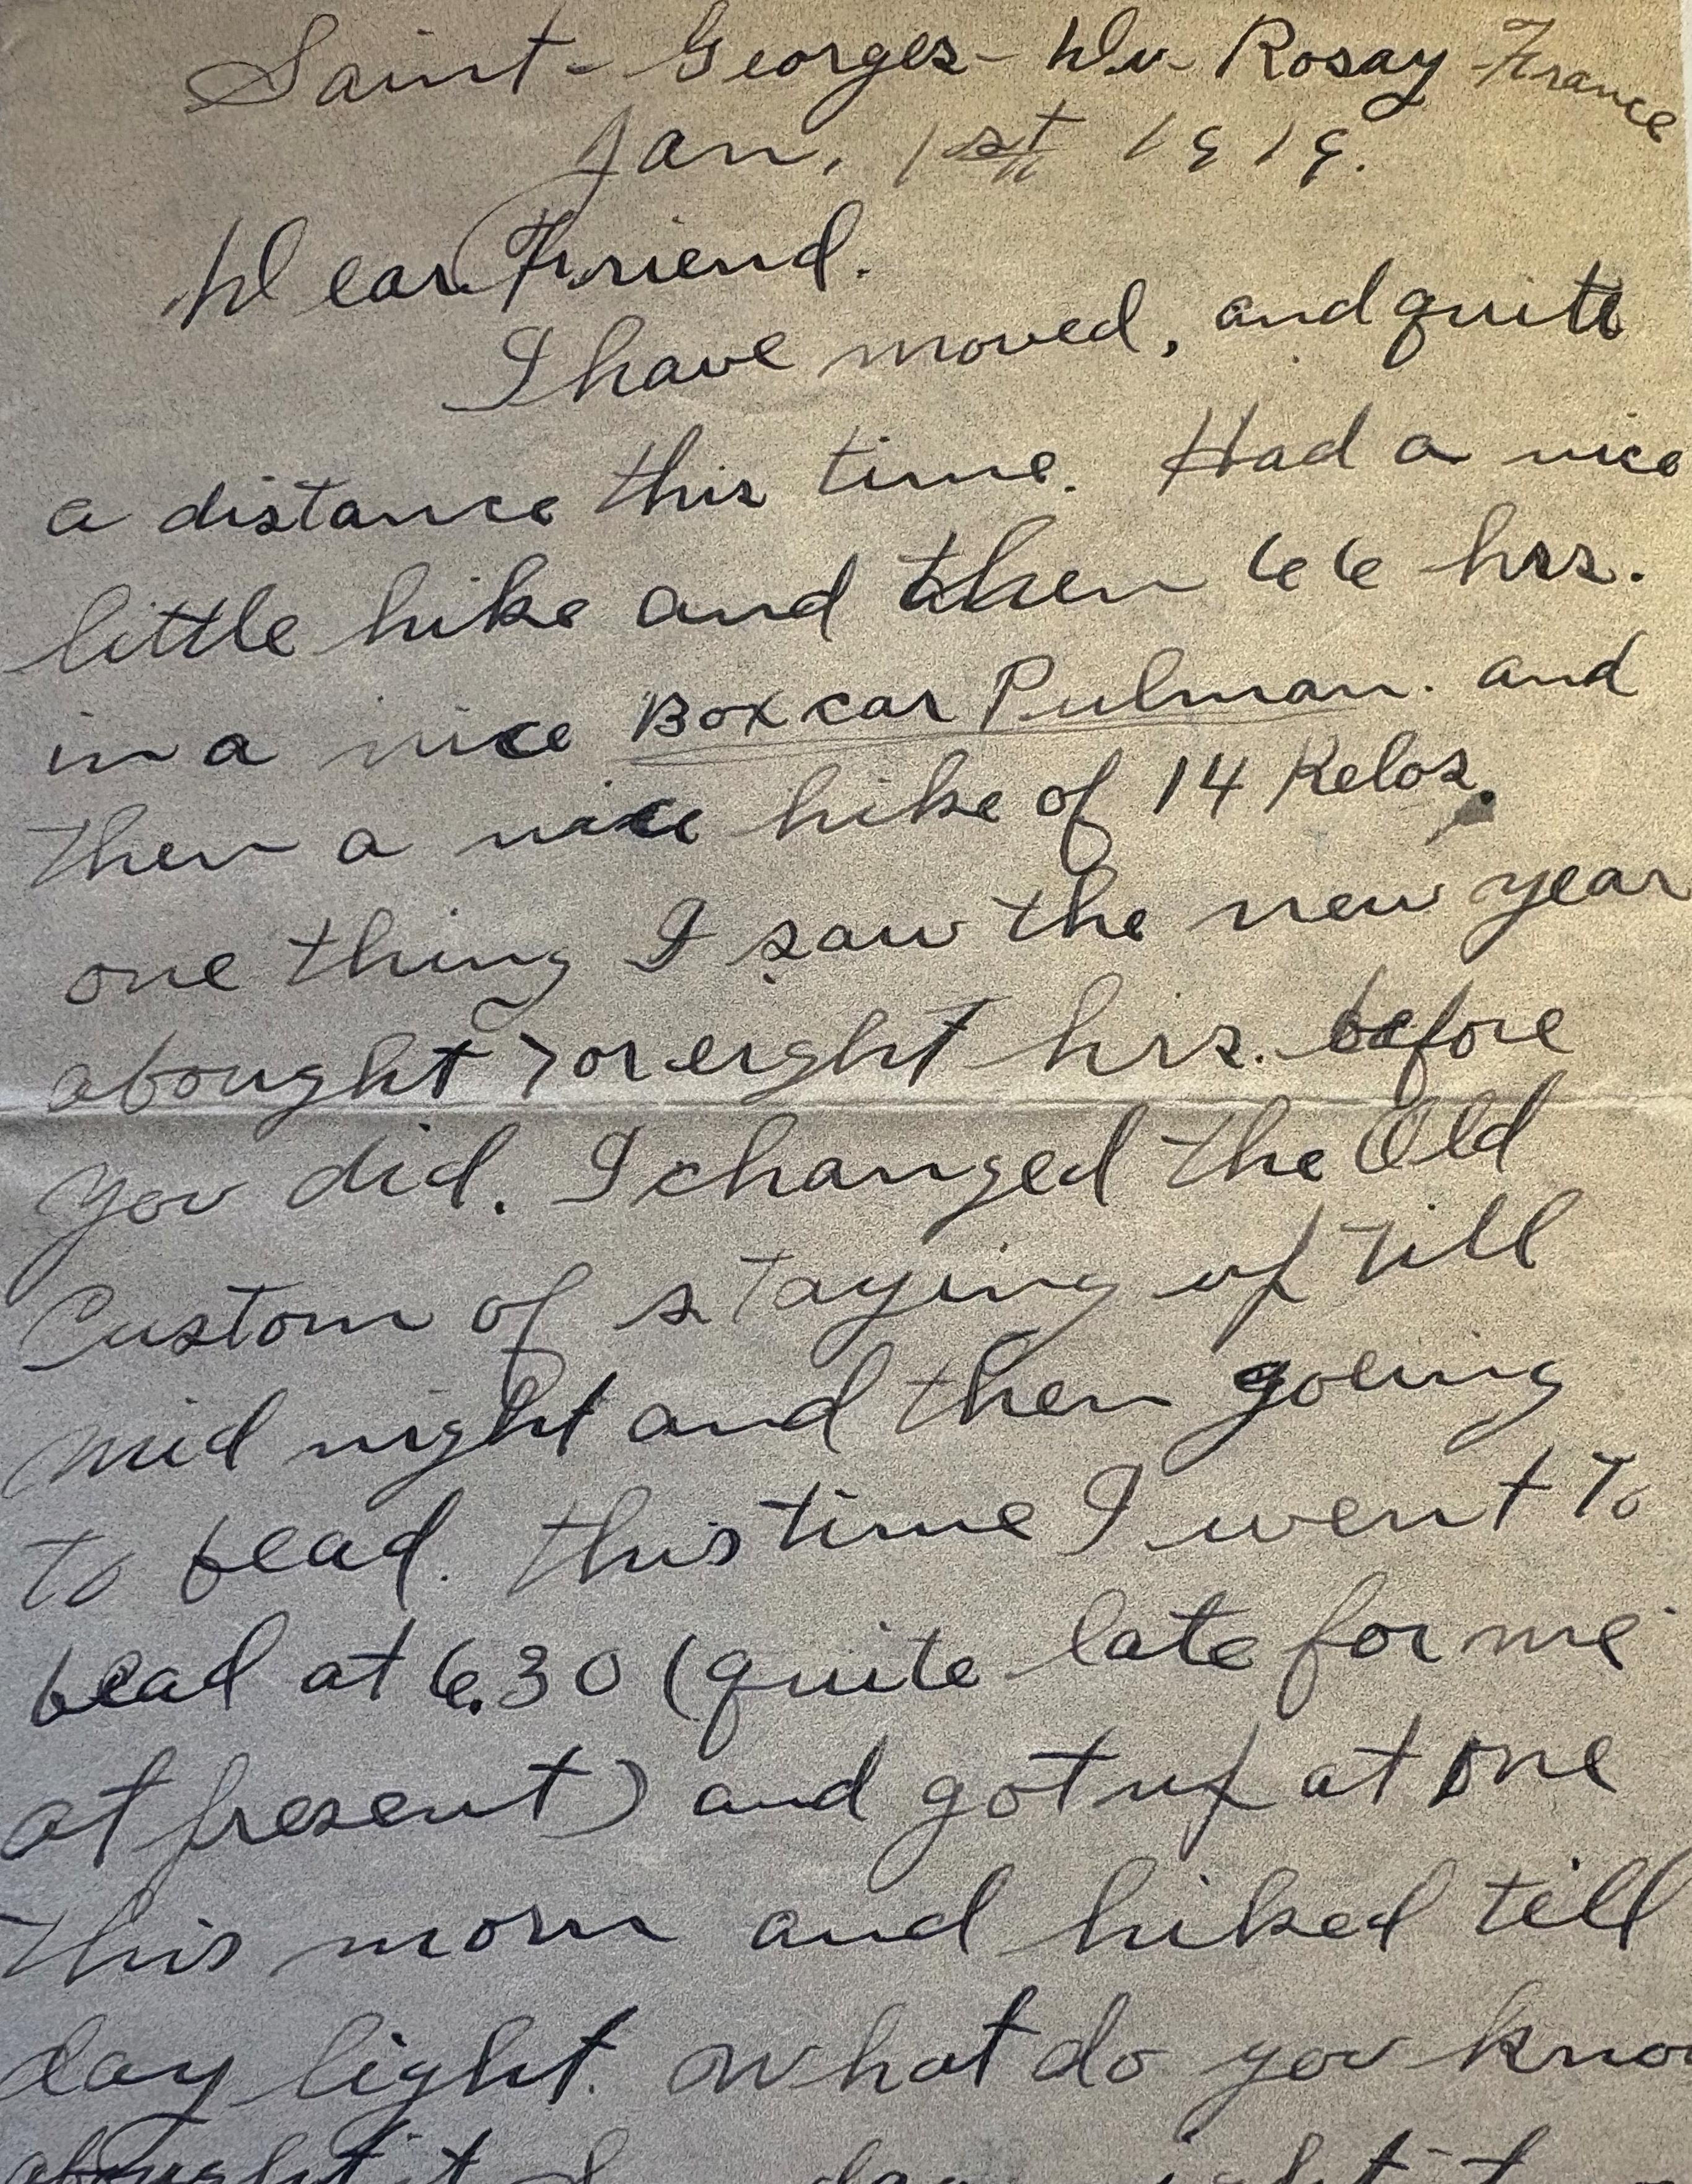 Saint-Georges-Du-Rosay-France
Jan, 1st 1919.
Dear Friend.
I have moved, and quite
a distance this time. Had a nice
little hike and then 66 hrs.
in a nice Box car Pulman. and
then a nice hike of 14 Kelos.
one thing I saw the new year
abought 7 or eight hrs. before
you did. I changed the Old
Custom of staying up till
mid night and then goeing
to bead. this time I went to
bead at 6.30 (quite late for me
at present) and got up at one
this morn and hiked till
day light. What do you know
abought it I